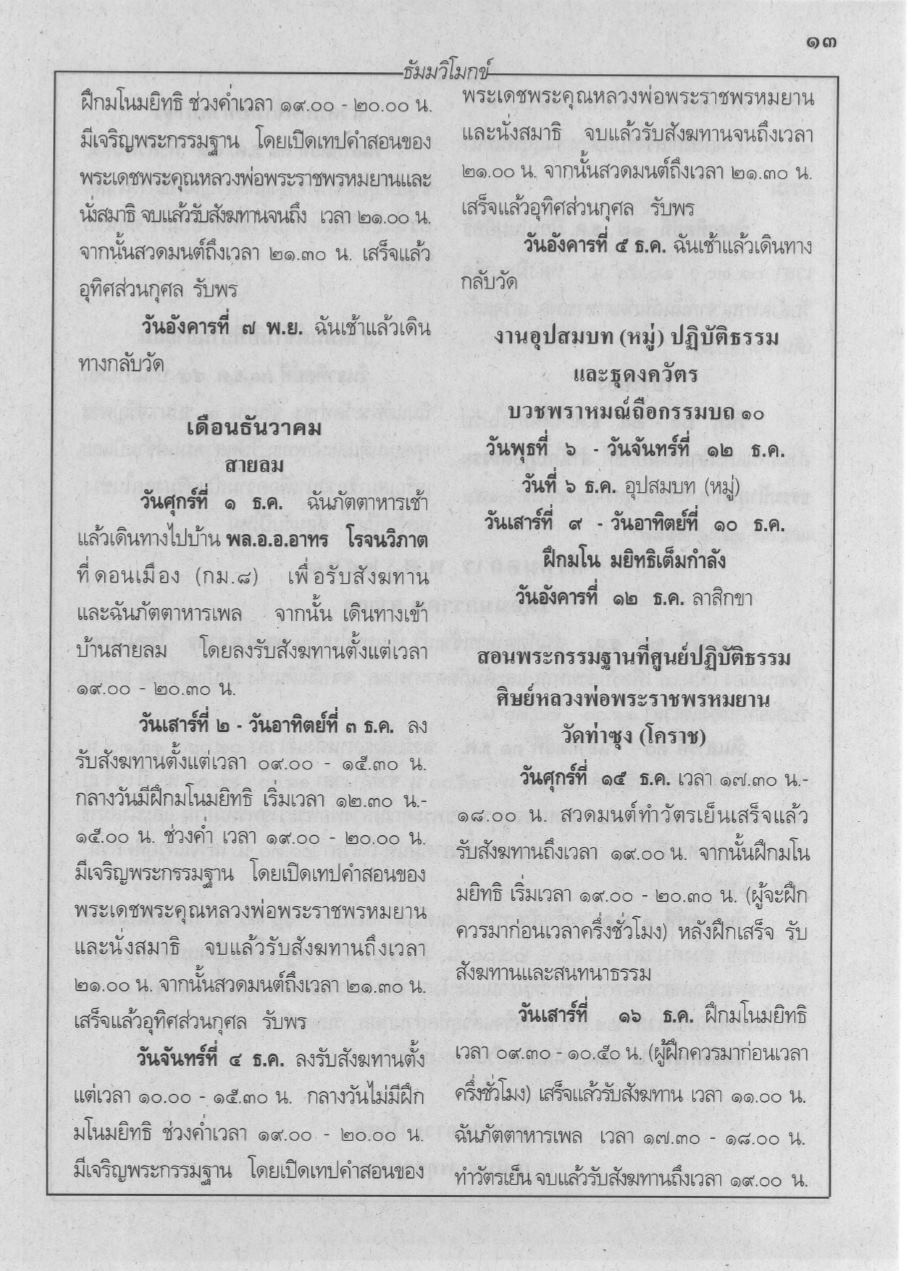 ๑๓
ธัมมวิโมกข์
ฝึกมโนมยิทธิ ช่วงค่ำเวลา ๑๙.๐๐ - ๒๐.๐๐ น.
มีเจริญพระกรรมฐาน โดยเปิดเทปคำสอนของ
พระเดชพระคุณหลวงพ่อพระราชพรหมยานและ
นั่งสมาธิ จบแล้วรับสังฆทานจนถึง เวลา ๒๑.๐๐ น.
จากนั้นสวดมนต์ถึงเวลา ๒๑.๓๐ น. เสร็จแล้ว
อุทิศส่วนกุศล รับพร
วันอังคารที่ ๗ พ.ย. ฉันเช้าแล้วเดิน
ทางกลับวัด
เดือนธันวาคม
สายลม
วันศุกร์ที่ ๑ ธ.ค. ฉันภัตตาหารเช้า
แล้วเดินทางไปบ้าน พล.อ.อ.อาทร โรจนวิภาต
ที่ ดอนเมือง (กม.๘) เพื่อรับสังฆทาน
และฉันภัตตาหารเพล จากนั้น เดินทางเข้า
บ้านสายลม โดยลงรับสังฆทานตั้งแต่เวลา
๑๙.๐๐ - ๒๐.๓๐ น.
วันเสาร์ที่ ๒ - วันอาทิตย์ที่ ๓ ธ.ค. ลง
รับสังฆทานตั้งแต่เวลา ๐๙.๐๐ - ๑๕.๓๐ น.
กลางวันมีฝึกมโนมยิทธิ เริ่มเวลา ๑๒.๓๐ น.-
๑๕.๐๐ น. ช่วงค่ำ เวลา ๑๙.๐๐ - ๒๐.๐๐ น.
มีเจริญพระกรรมฐาน โดยเปิดเทปคำสอนของ
พระเดชพระคุณหลวงพ่อพระราชพรหมยาน
และนั่งสมาธิ จบแล้วรับสังฆทานถึงเวลา
๒๑.๐๐ น. จากนั้นสวดมนต์ถึงเวลา ๒๑.๓๐ น.
เสร็จแล้วอุทิศส่วนกุศล รับพร
วันจันทร์ที่ ๔ ธ.ค. ลงรับสังฆทานตั้ง
แต่เวลา ๑๐.๐๐ - ๑๕.๓๐ น. กลางวันไม่มีฝึก
มโนมยิทธิ ช่วงค่ำเวลา ๑๙.๐๐ - ๒๐.๐๐ น.
มีเจริญพระกรรมฐาน โดยเปิดเทปคำสอนของ
พระเดชพระคุณหลวงพ่อพระราชพรหมยาน
และนั่งสมาธิ จบแล้วรับสังฆทานจนถึงเวลา
๒๑.๐๐ น. จากนั้นสวดมนต์ถึงเวลา ๒๑.๓๐ น.
เสร็จแล้วอุทิศส่วนกุศล รับพร
วันอังคารที่ ๕ ธ.ค. ฉันเช้าแล้วเดินทาง
กลับวัด
งานอุปสมบท (หมู่) ปฏิบัติธรรม
และธุดงควัตร
บวชพราหมณ์ถือกรรมบถ ๑๐
วันพุธที่ ๖ - วันจันทร์ที่ ๑๒ ธ.ค.
วันที่ ๖ ธ.ค. อุปสมบท (หมู่)
วันเสาร์ที่ ๙ - วันอาทิตย์ที่ ๑๐ ธ.ค.
ฝึกมโน มยิทธิเต็มกำลัง
วันอังคารที่ ๑๒ ธ.ค. ลาสิกขา
สอนพระกรรมฐานที่ศูนย์ปฏิบัติธรรม
ศิษย์หลวงพ่อพระราชพรหมยาน
วัดท่าซุง (โคราช)
วันศุกร์ที่ ๑๕ ธ.ค. เวลา ๑๗.๓๐ น.-
๑๘.๐๐ น. สวดมนต์ทำวัตรเย็นเสร็จแล้ว
รับสังฆทานถึงเวลา ๑๙.๐๐ น. จากนั้นฝึกมโน
มยิทธิ เริ่มเวลา ๑๙.๐๐ - ๒๐.๓๐ น. (ผู้จะฝึก
ควรมาก่อนเวลาครึ่งชั่วโมง) หลังฝึกเสร็จ รับ
สังฆทานและสนทนาธรรม
วันเสาร์ที่ ๑๖ ธ.ค. ฝึกมโนมยิทธิ
เวลา ๐๙.๓๐ - ๑๐.๕๐ น. (ผู้ฝึกควรมาก่อนเวลา
ครึ่งชั่วโมง) เสร็จแล้วรับสังฆทาน เวลา ๑๑.๐๐ น.
ฉันภัตตาหารเพล เวลา ๑๗.๓๐ - ๑๘.๐๐ น.
ทำวัตรเย็น จบแล้วรับสังฆทานถึงเวลา ๑๙.๐๐ น.